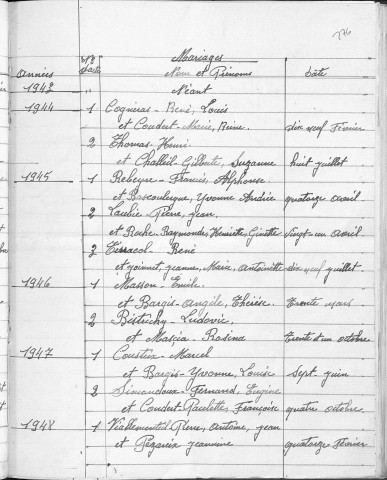 176
Mariages
Années N° d'acte Nom et Prénoms date
1943 Néant
1944 1 Cogneras - René, Louis
et Coudert - Marie, Reine. dix neuf Février
2 Thomas - Henri
et Gilberte, Suzanne huit juillet
1945 1 Rebeyre - Francis, Alphonse
et Yvonne Andrée quatorze avril
2 Laubie - Pierre, jean.
et Roche - Raymonde, Henriette, Ginette Vingt-un avril
3 Terracol - René
et jeanne, Marie, Antoinette dix neuf juillet
1946 1 Masson - Emile.
et Bargis - Angèle, Thérèse. Trente mars
2 Bistrichy - Ludovic
et Mascia - Rosina Trente et un octobre
1947 1 Coustin - Marcel
et Bargis - Yvonne, Louise Sept juin
2 Simandoux - Fernand, Eugène
et Coudert - Paulette, Françoise quatre octobre
1948 1 Viallemental Pierre, Antoine, jean
et jeannine quatorze Février